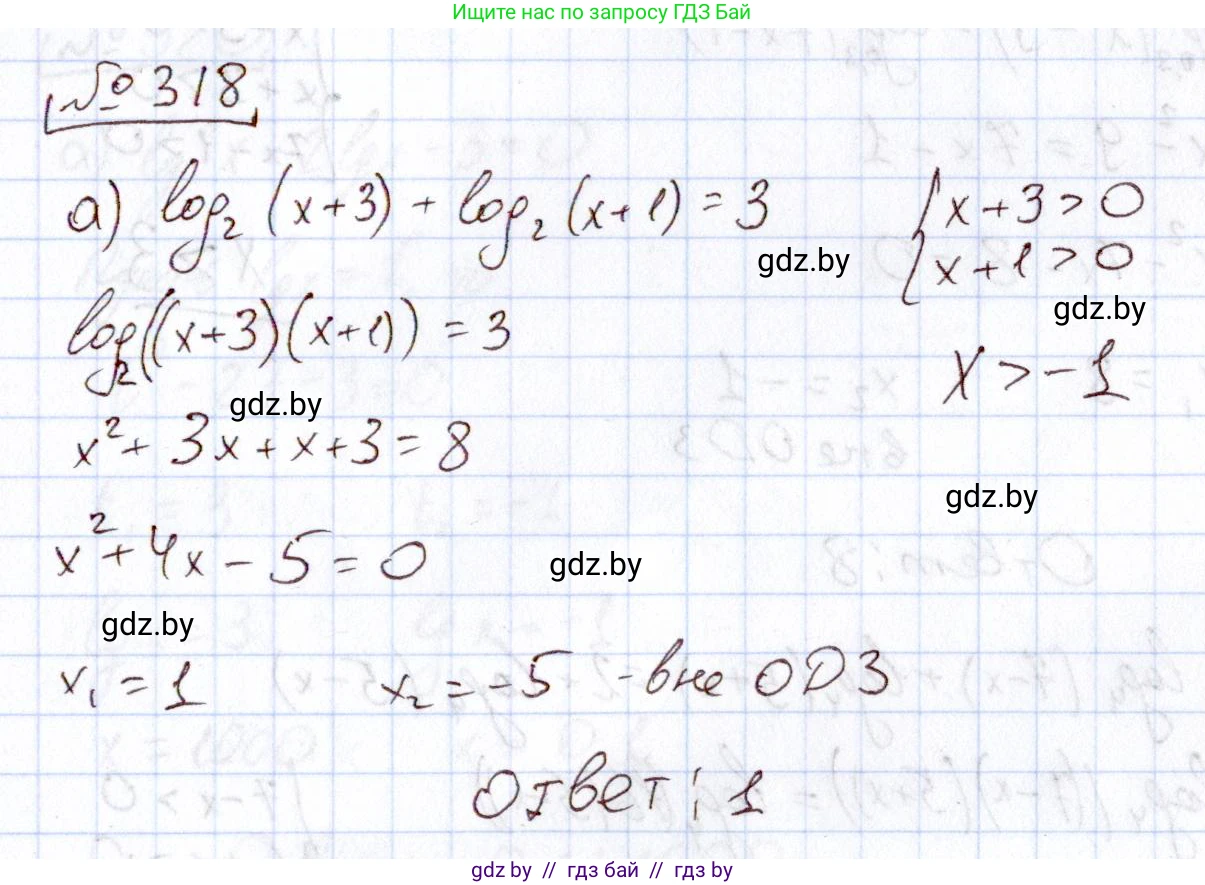 Ищите нас по запросу ГДЗ Бай
№ 318
а) log₂ (x+3) + log₂ (x+1) = 3
{ x+3 > 0
x+1 > 0
gdz.by
gdz.by
log₂((x+3)(x+1)) = 3
x > -1
gdz.by
x² + 3x + x + 3 = 8
gdz.by
x² + 4x - 5 = 0
gdz.by
gdz.by
x₁ = 1 x₂ = -5 - вне ОДЗ
Ответ: 1
gdz.by // гдз бай // гдз by